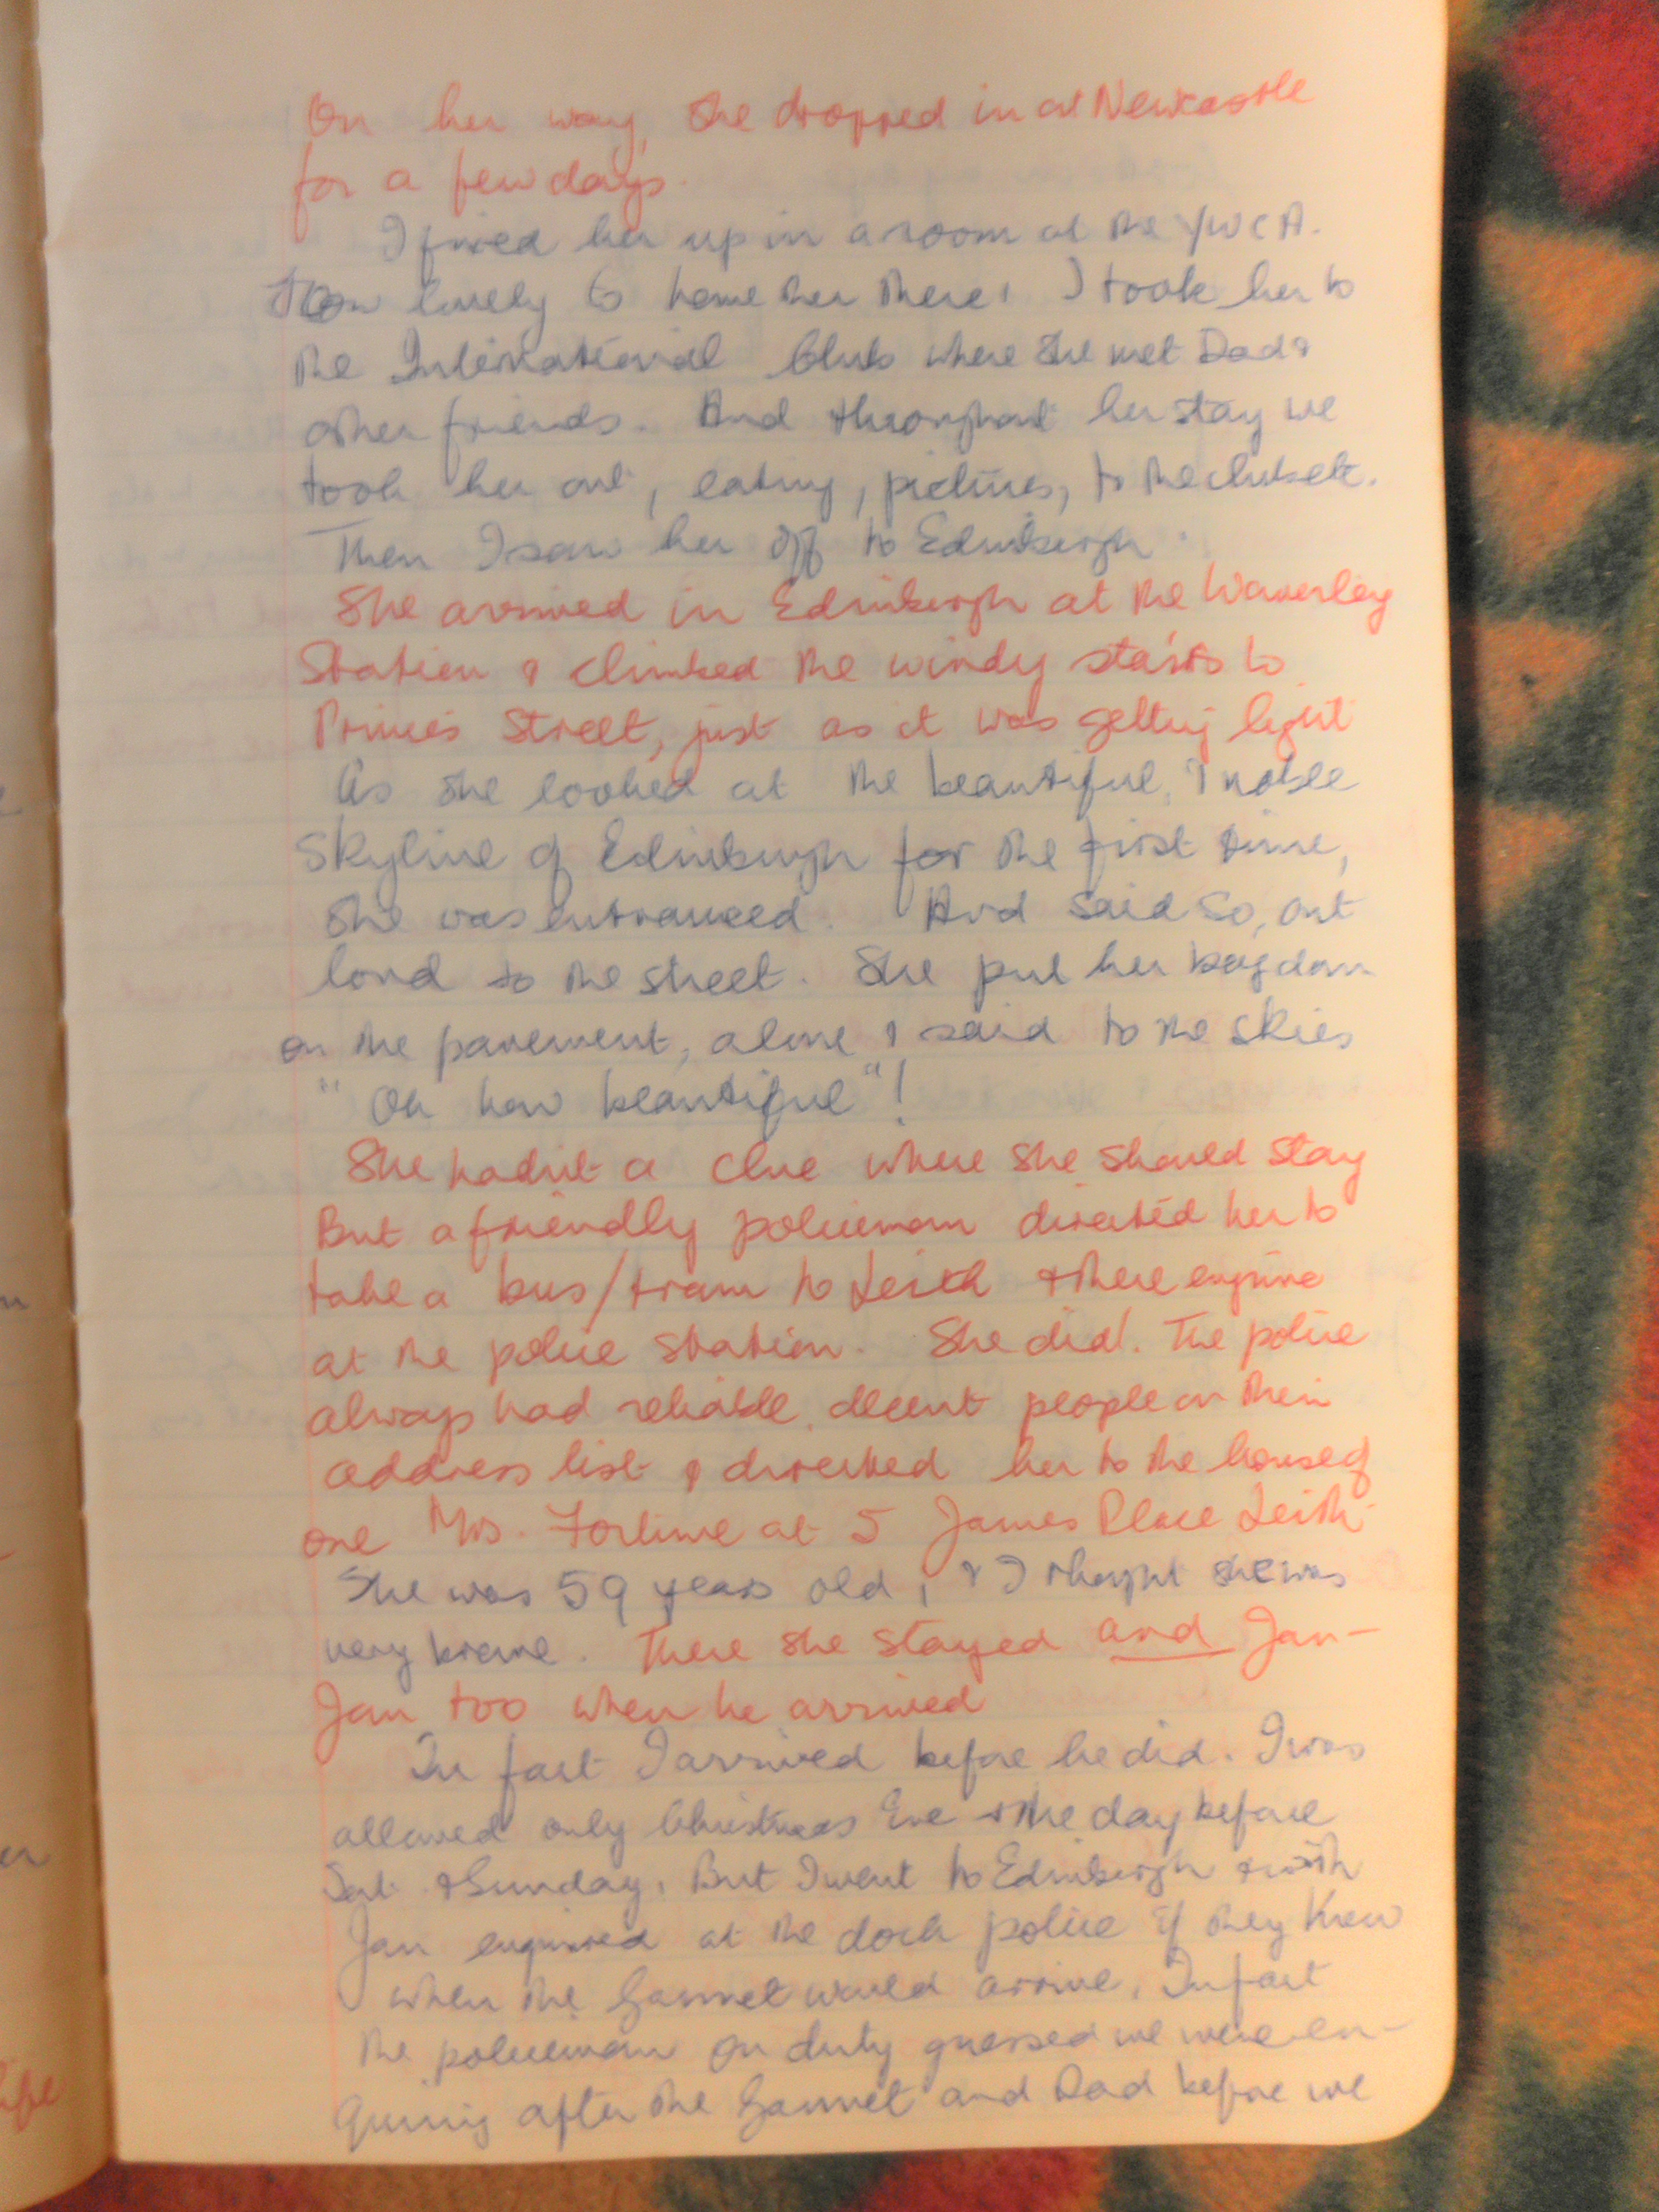 On her way, she dropped in at Newcastle
for a few days.
I fixed her up in a room at the YWCA.
How lovely to have her there! I took her to
the International Club where she met Dad &
other friends. And throughout her stay we
took her out, eating, pictures, to the club etc.
Then I saw her off to Edinburgh.
She arrived in Edinburgh at the Waverley
Station & climbed the windy stairs to
Princes Street, just as it was getting light
As she looked at the beautiful, & noble
skyline of Edinburgh for the first time,
she was entranced. And said so, out
loud to the street. She put her bag down
on the pavement, alone & said to the skies
"Oh how beautiful"!
She hadn't a clue where she should stay
But a friendly policeman directed her to
take a bus/tram to Leith & there enquire
at the police station. She did. The police
always had reliable, decent people on their
address list & directed her to the house of
one Mrs. Fortune at 5 James Place Leith.
She was 59 years old, & I thought she was
very brave. There she stayed and Jan-
Jan too when he arrived
In fact I arrived before he did. I was
allowed only Christmas Eve & the day before
Sat & Sunday. But I went to Edinburgh & with
Jan enquired at the dock police if they knew
when the Gannet would arrive. In fact
the policeman on duty guessed we were en-
quiring after the Gannet and Dad before we